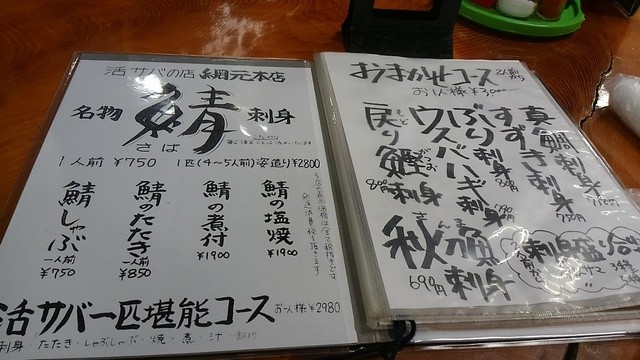 活サバの店 網元本店
名物 鯖 刺身
さば
1人前 ¥750 1匹(4~5人前)姿造り¥2800
鯖の塩焼 ¥1900
鯖の煮付 ¥1900
鯖のたたき 一人前 ¥850
鯖しゃぶ 一人前 ¥750
活サバ一匹堪能コース お一人様¥2980
刺身・たたき・しゃぶしゃぶ・焼・煮・汁
おまかせコース 2人前から
お1人様¥3,000~
真鯛刺身
すずき刺身 750円
ぶり刺身
ウスバハギ刺身
戻り鰹刺身
もど かつお
秋刀魚刺身 690円
さんま
刺身盛り合せ